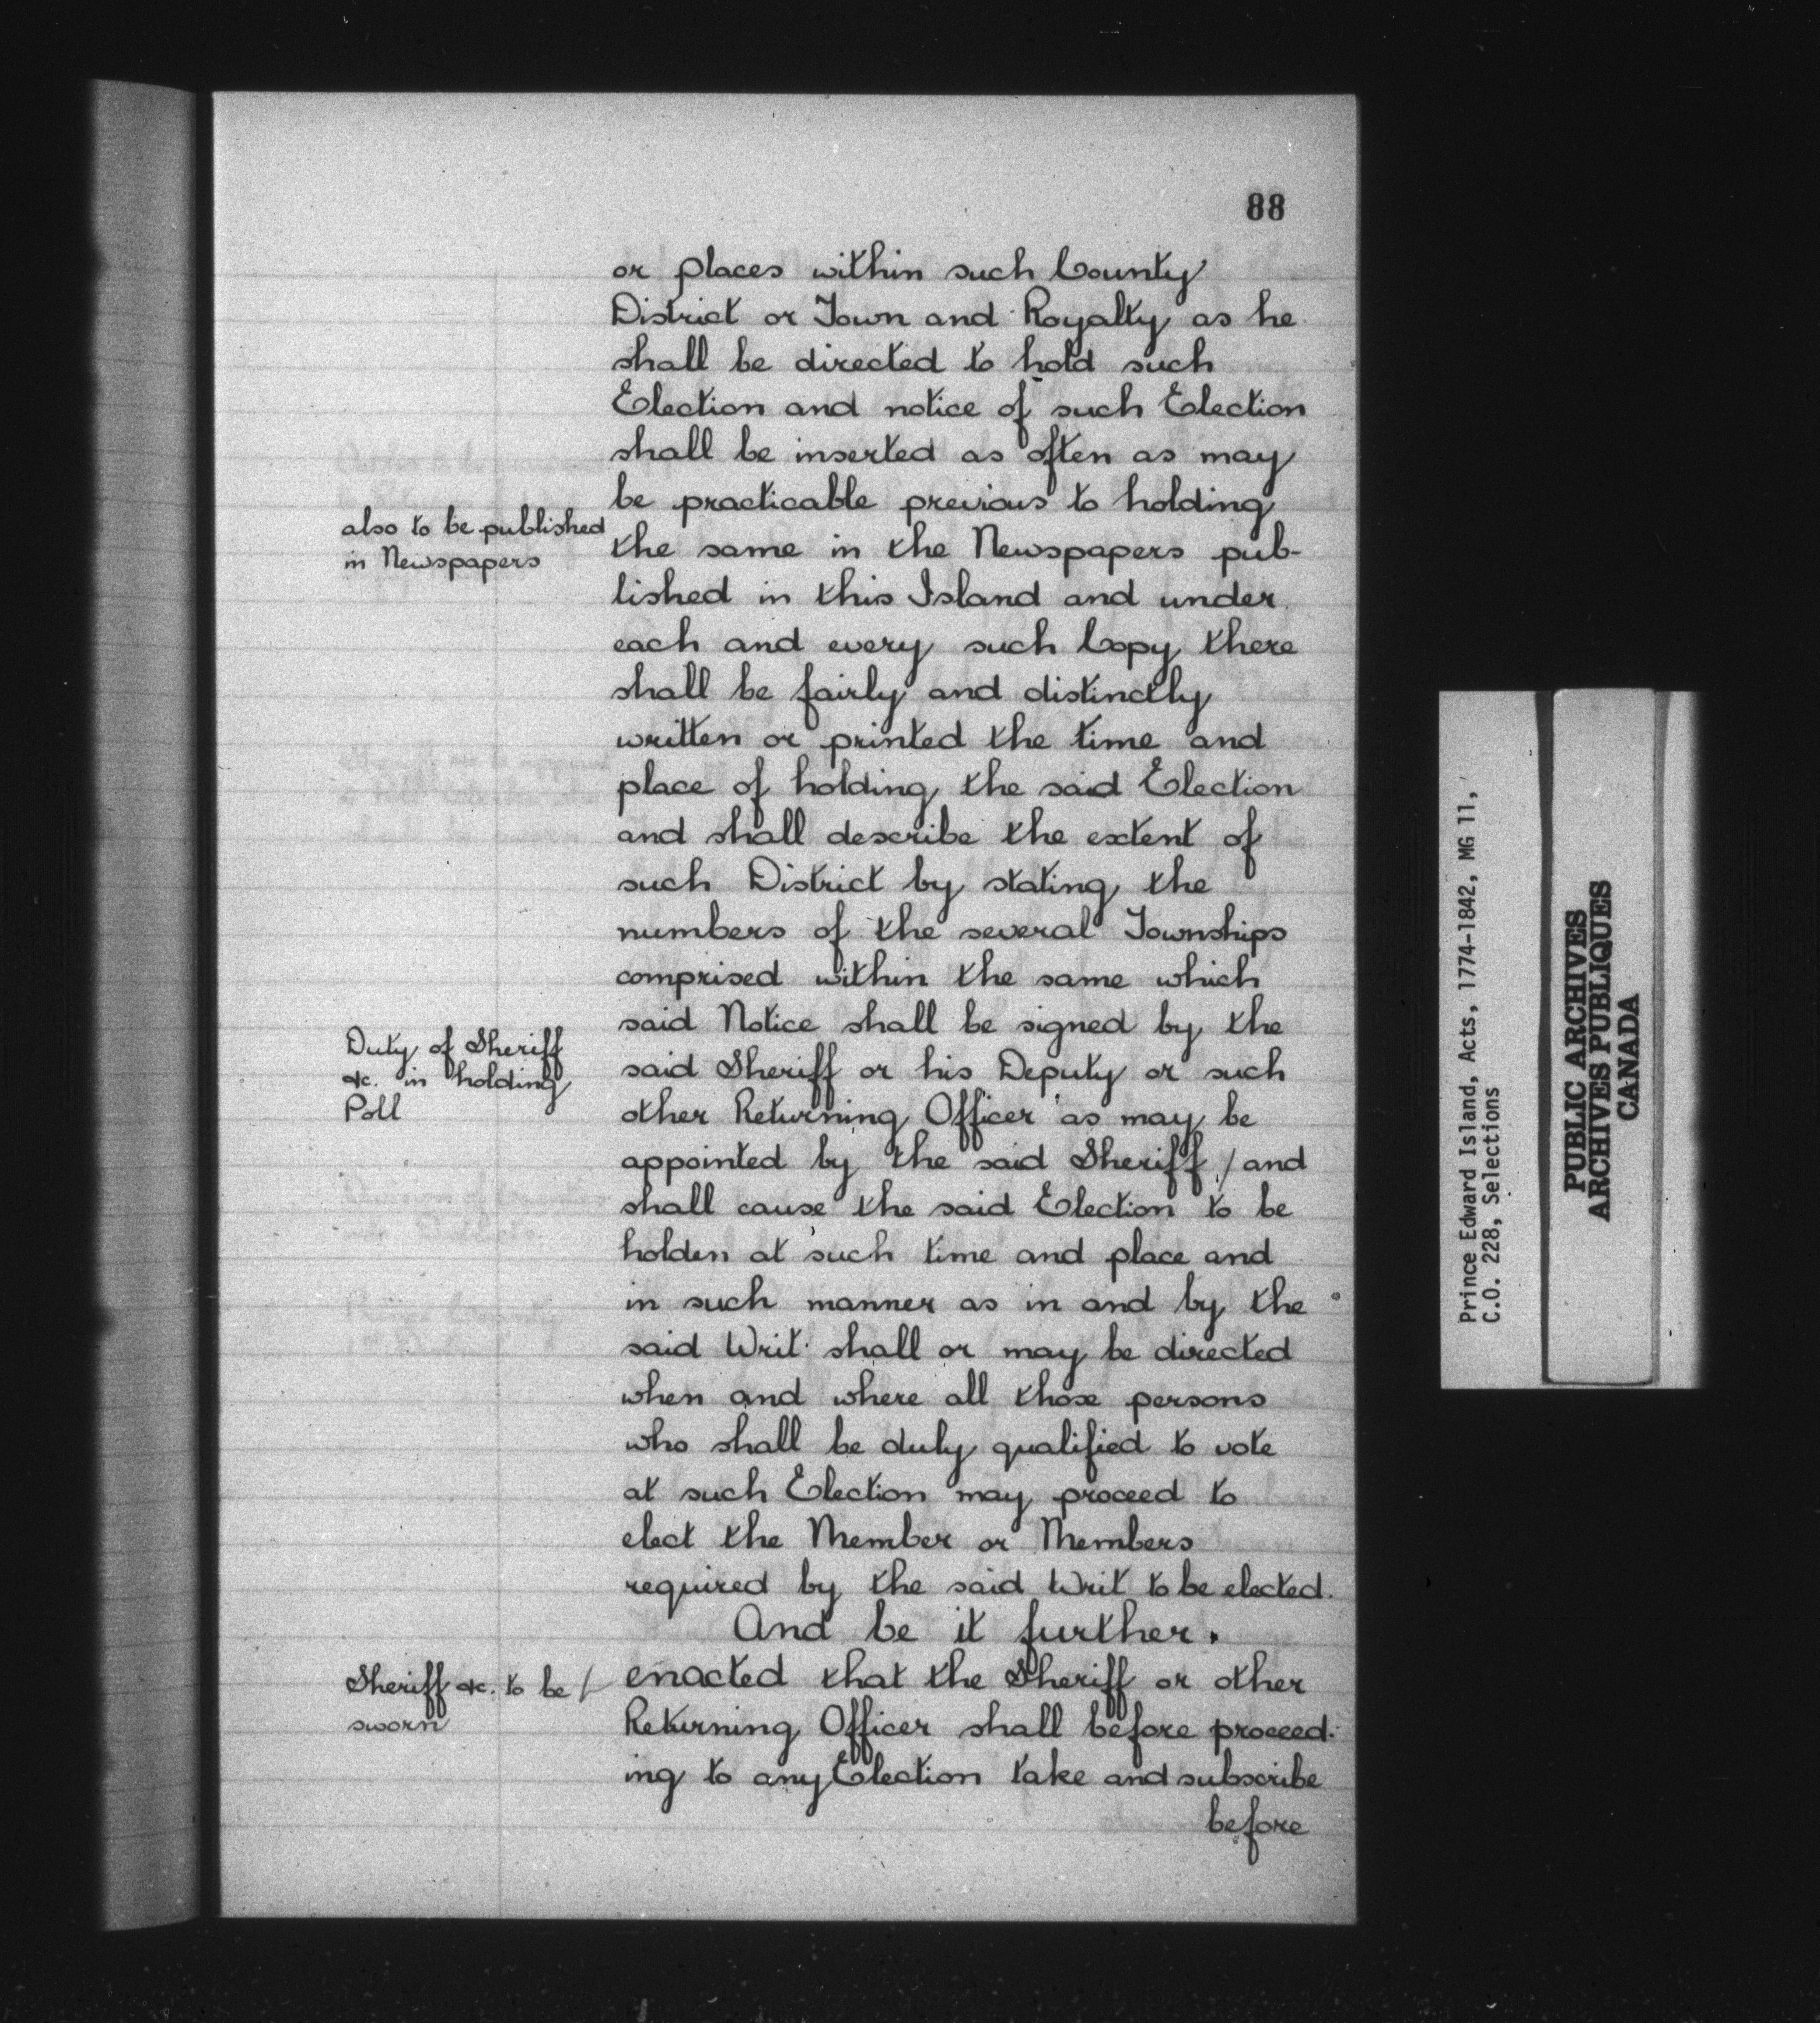 88
or places within such County
District or Town and Royalty as he
shall be directed to hold such
Election and notice of such Election
shall be inserted as often as may
be practicable previous to holding
also to be published
in Newspapers
the same in the Newspapers pub-
lished in this Island and under
each and every such Copy there
shall be fairly and distinctly
written or printed the time and
place of holding the said Election
and shall describe the extent of
such District by stating the
numbers of the several Townships
comprised within the same which
said Notice shall be signed by the
Duty of Sheriff
&c. in holding
Poll
said Sheriff or his Deputy or such
other Returning Officer as may be
appointed by the said Sheriff / and
shall cause the said Election to be
holden at such time and place and
in such manner as in and by the
said Writ shall or may be directed
when and where all those persons
who shall be duly qualified to vote
at such Election may proceed to
elect the Member or Members
required by the said Writ to be elected.
And be it further.
Sheriff &c. to be /
sworn
enacted that the Sheriff or other
Returning Officer shall before proceed-
ing to any Election take and subscribe
before
Prince Edward Island, Acts, 1774-1842, MG 11,
C.O. 228, Selections
PUBLIC ARCHIVES
ARCHIVES PUBLIQUES
CANADA